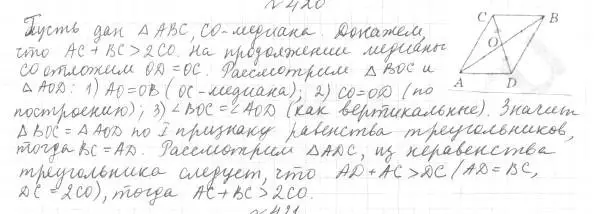 №420
Пусть дан △ ABC, CO-медиана. Докажем,
что AC + BC > 2CO. На продолжении медианы
CO отложим OD = OC. Рассмотрим △ BOC и
△ AOD: 1) AO = OB (OC-медиана); 2) CO = OD (по
построению); 3) ∠BOC = ∠AOD (как вертикальные). Значит
△ BOC = △ AOD по I признаку равенства треугольников,
тогда BC = AD. Рассмотрим △ADC, из неравенства
треугольника следует, что AD + AC > DC (AD = BC,
DC = 2CO), тогда AC + BC > 2CO.
№421
C B
O
A D